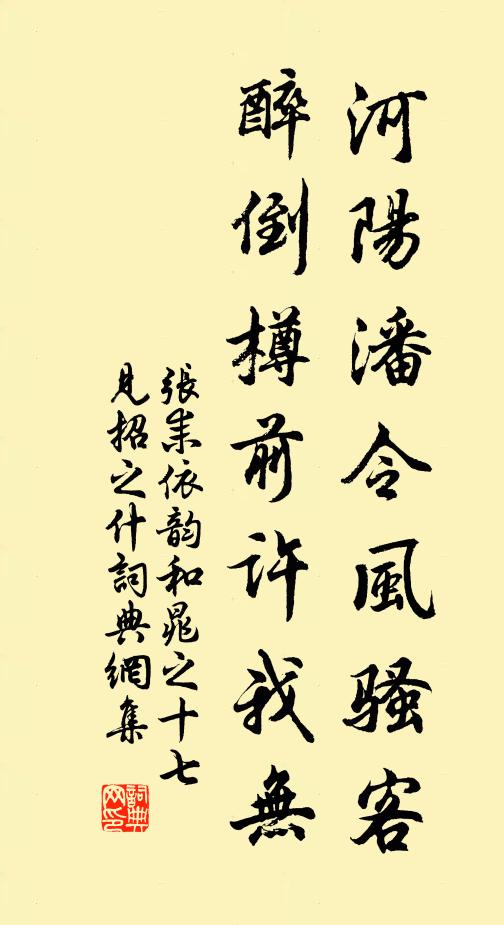 河陽潘令風騷客
醉倒樽前許我無
張耒依韵和晁之十七
見招之什詞典網集
詞典網印